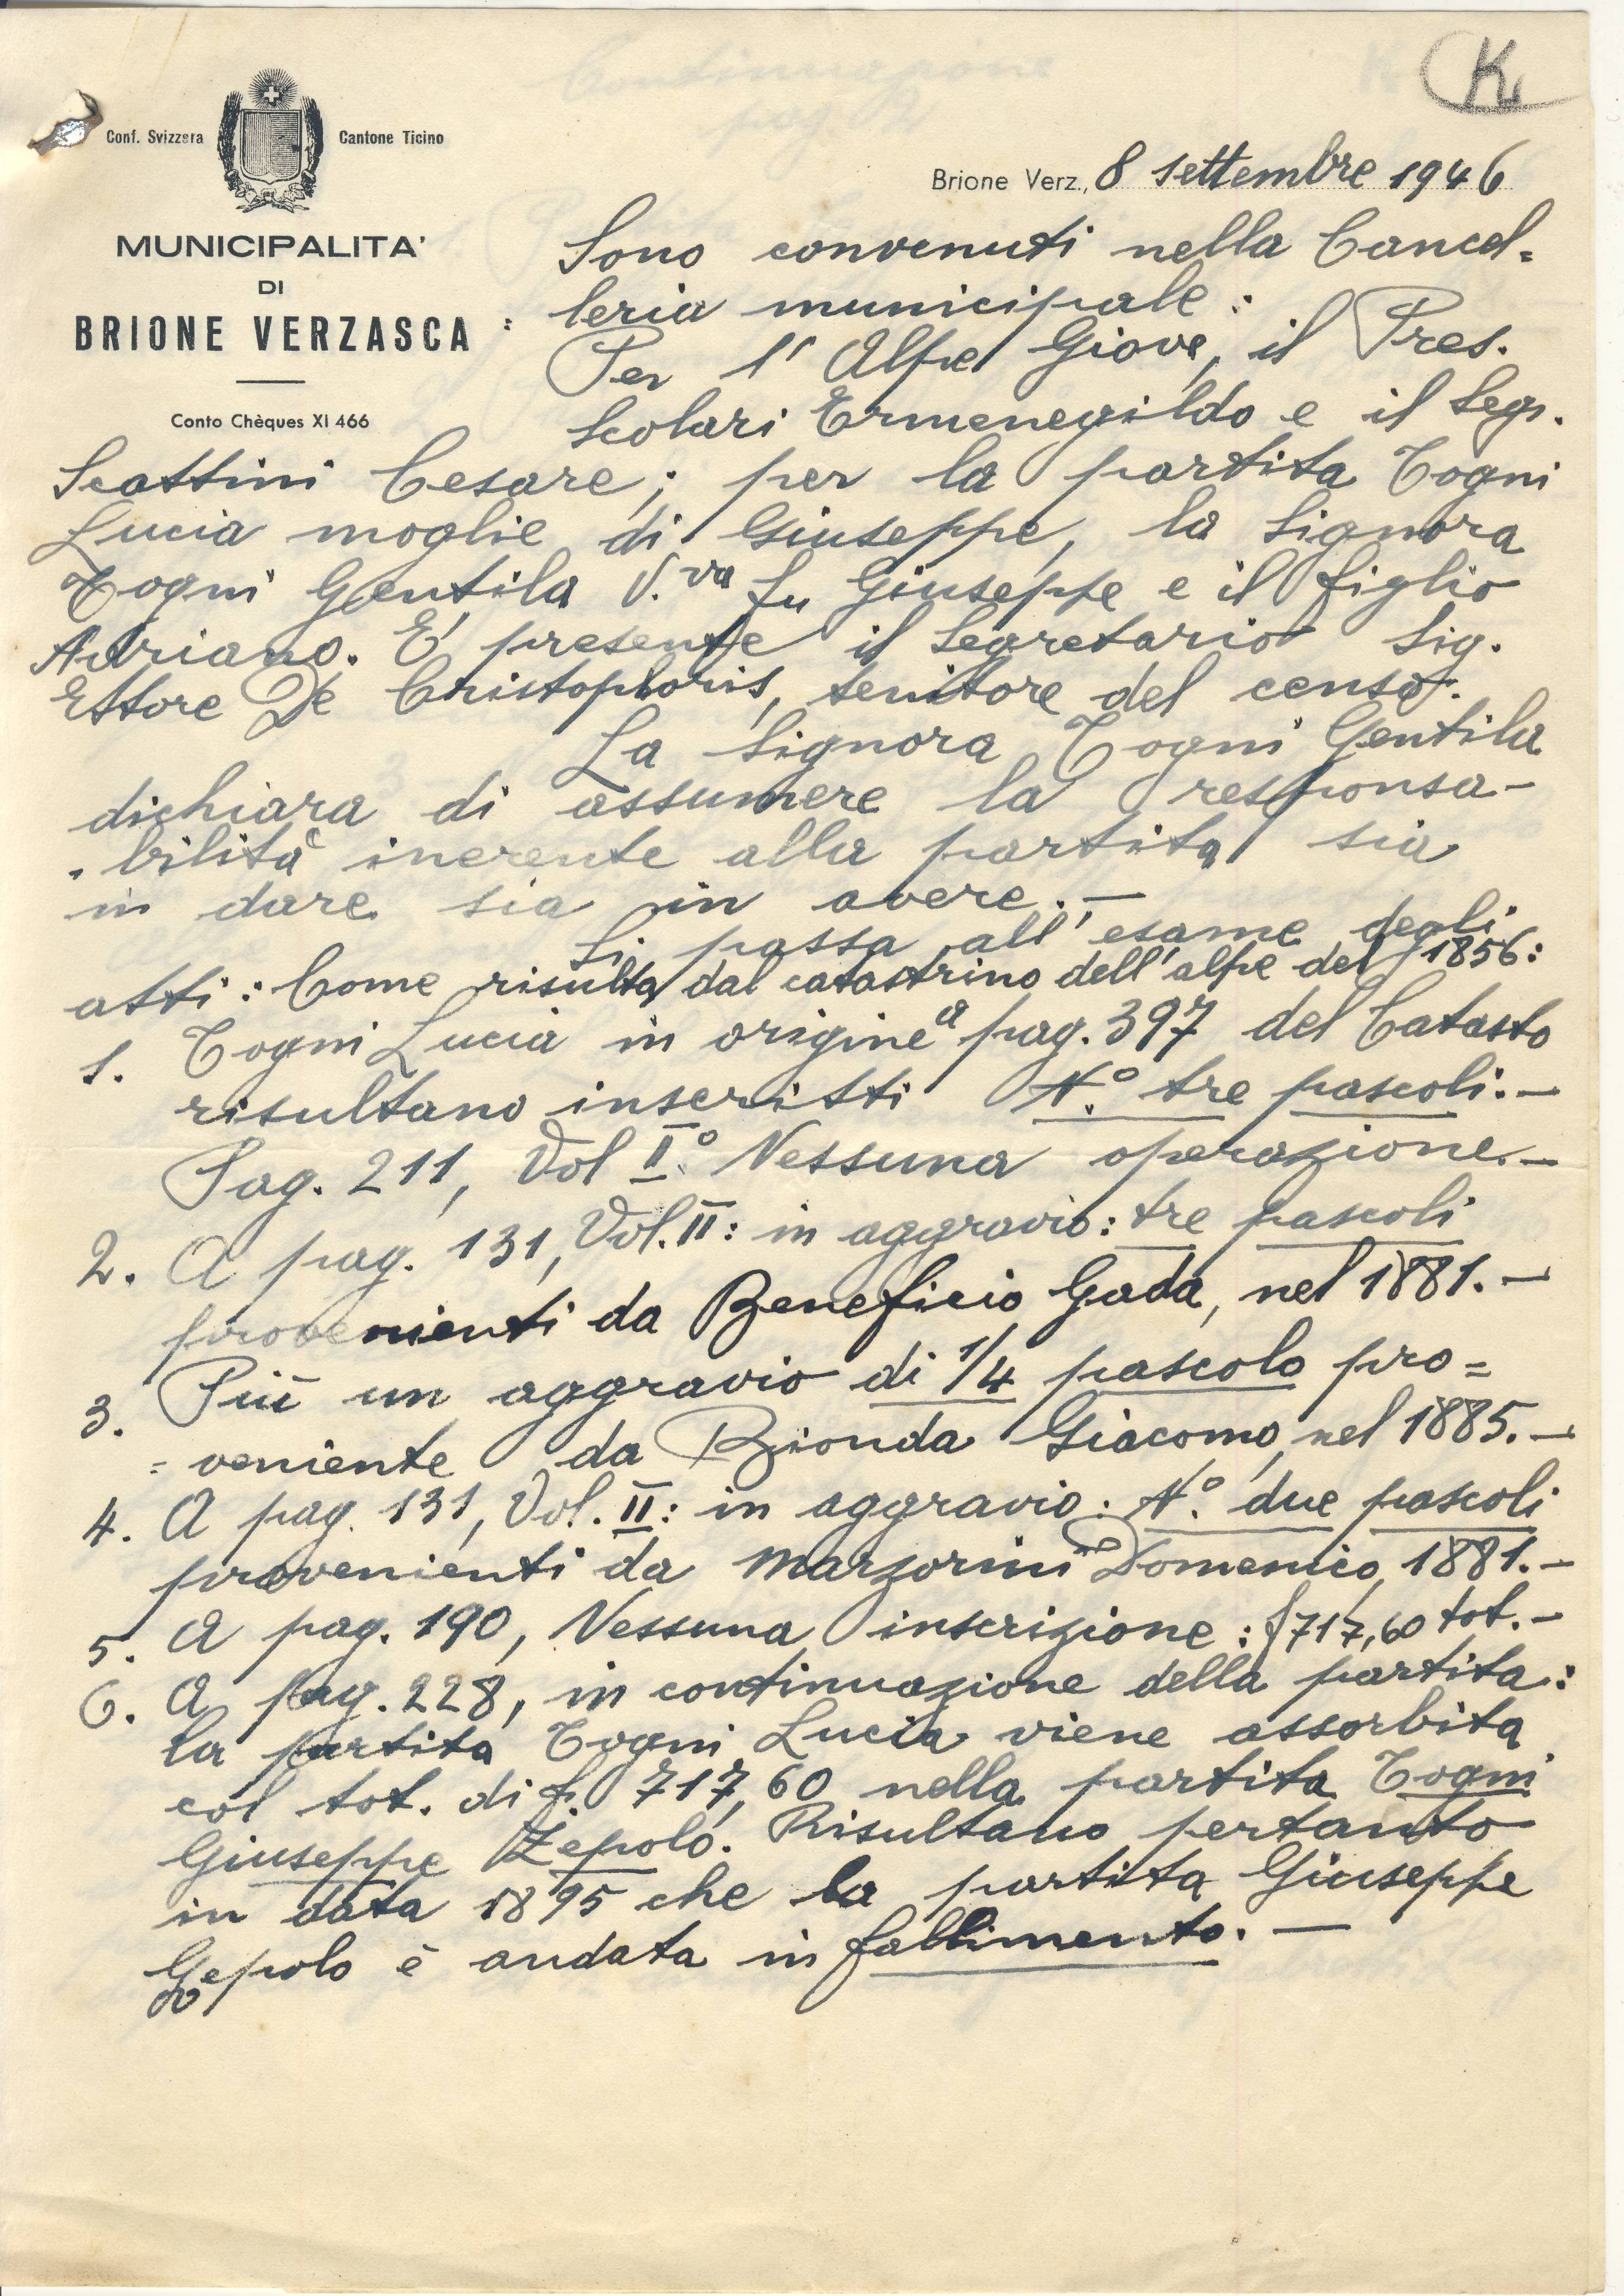 K
Conf. Svizzera Cantone Ticino
MUNICIPALITA'
DI
BRIONE VERZASCA
Conto Chèques XI 466
Brione Verz., 8 settembre 1946
Sono convenuti nella Cancel=
=leria municipale :
Per l'Alpe Giove, il Pres.
Scolari Ermenegildo e il Segr.
Scattini Cesare; per la partita Togni
Lucia moglie di Giuseppe, la Signora
Togni Gentila V.va fu Giuseppe e il figlio
Adriano. E' presente il Segretario Sig.
Ettore De Cristophoris, tenitore del censo.
La Signora Togni Gentila
dichiara di assumere la responsa-
-bilità inerente alla partita sia
in dare sia in avere.-
Si passa all'esame degli
atti: Come risulta dal catastrino dell'alpe del 1856:
1. Togni Lucia in origine a pag. 397 del Catasto
risultano inseristti N.° tre pascoli.-
Pag. 211, Vol I.° Nessuna operazione.-
2. A pag. 131, Vol. II: in aggravio: tre pascoli
provenienti da Beneficio Gada, nel 1881.-
3. Più un aggravio di 1/4 pascolo pro=
=veniente da Bionda Giacomo, nel 1885.-
4. A pag. 131, Vol. II: in aggravio: N.° due pascoli
provenienti da Marzorini Domenico, 1881.-
5. A pag. 190, Nessuna inscrizione: f 717,60 tot.-
6. A pag. 228, in continuazione della partita:
la partita Togni Lucia viene assorbita
col tot. di f. 717,60 nella partita Togni
Giuseppe Zepolo. Risultano pertanto
in data 1895 che la partita Giuseppe
Gepolo è andata in fallimento.-